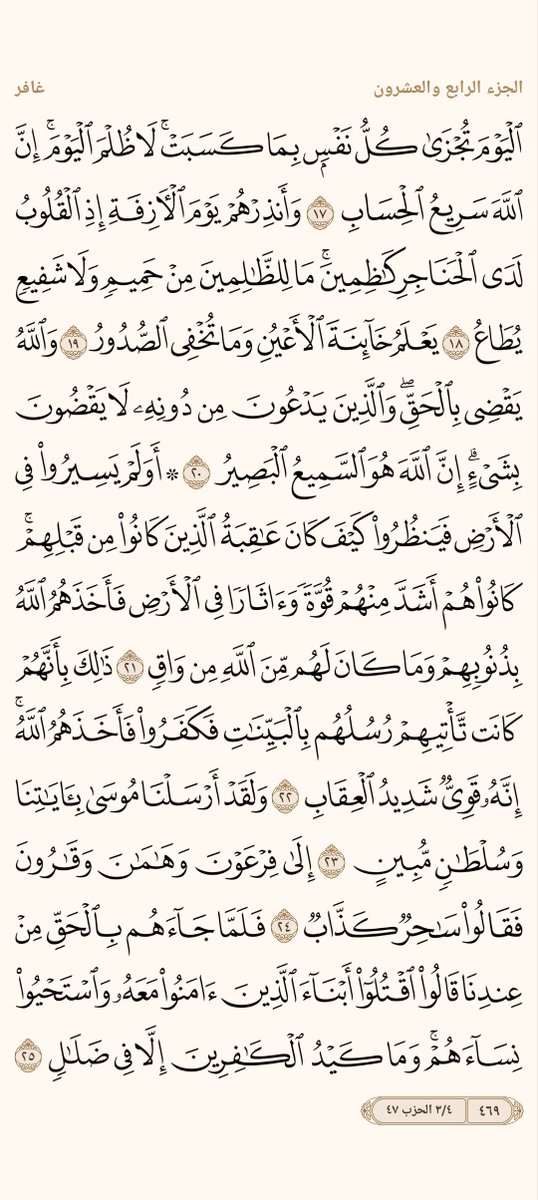 الجزء الرابع والعشرون
غافر
ٱلۡيَوۡمَ تُجۡزَىٰ كُلُّ نَفۡسِۭ بِمَا كَسَبَتۡۚ لَا ظُلۡمَ ٱلۡيَوۡمَۚ إِنَّ
ٱللَّهَ سَرِيعُ ٱلۡحِسَابِ ١٧ وَأَنذِرۡهُمۡ يَوۡمَ ٱلۡأٓزِفَةِ إِذِ ٱلۡقُلُوبُ
لَدَى ٱلۡحَنَاجِرِ كَٰظِمِينَۚ مَا لِلظَّٰلِمِينَ مِنۡ حَمِيمٖ وَلَا شَفِيعٖ
يُطَاعُ ١٨ يَعۡلَمُ خَآئِنَةَ ٱلۡأَعۡيُنِ وَمَا تُخۡفِي ٱلصُّدُورُ ١٩ وَٱللَّهُ
يَقۡضِي بِٱلۡحَقِّۖ وَٱلَّذِينَ يَدۡعُونَ مِن دُونِهِۦ لَا يَقۡضُونَ
بِشَيۡءٍۗ إِنَّ ٱللَّهَ هُوَ ٱلسَّمِيعُ ٱلۡبَصِيرُ ٢٠ ۞ أَوَلَمۡ يَسِيرُواْ فِي
ٱلۡأَرۡضِ فَيَنظُرُواْ كَيۡفَ كَانَ عَٰقِبَةُ ٱلَّذِينَ كَانُواْ مِن قَبۡلِهِمۡۚ
كَانُواْ هُمۡ أَشَدَّ مِنۡهُمۡ قُوَّةٗ وَءَاثَارٗا فِي ٱلۡأَرۡضِ فَأَخَذَهُمُ ٱللَّهُ
بِذُنُوبِهِمۡ وَمَا كَانَ لَهُم مِّنَ ٱللَّهِ مِن وَاقٖ ٢١ ذَٰلِكَ بِأَنَّهُمۡ
كَانَت تَّأۡتِيهِمۡ رُسُلُهُم بِٱلۡبَيِّنَٰتِ فَكَفَرُواْ فَأَخَذَهُمُ ٱللَّهُۚ
إِنَّهُۥ قَوِيّٞ شَدِيدُ ٱلۡعِقَابِ ٢٢ وَلَقَدۡ أَرۡسَلۡنَا مُوسَىٰ بِـَٔايَٰتِنَا
وَسُلۡطَٰنٖ مُّبِينٍ ٢٣ إِلَىٰ فِرۡعَوۡنَ وَهَٰمَٰنَ وَقَٰرُونَ
فَقَالُواْ سَٰحِرٞ كَذَّابٞ ٢٤ فَلَمَّا جَآءَهُم بِٱلۡحَقِّ مِنۡ
عِندِنَا قَالُواْ ٱقۡتُلُوٓاْ أَبۡنَآءَ ٱلَّذِينَ ءَامَنُواْ مَعَهُۥ وَٱسۡتَحۡيُواْ
نِسَآءَهُمۡۚ وَمَا كَيۡدُ ٱلۡكَٰفِرِينَ إِلَّا فِي ضَلَٰلٖ ٢٥
٤٦٩ ٣/٤ الحزب ٤٧